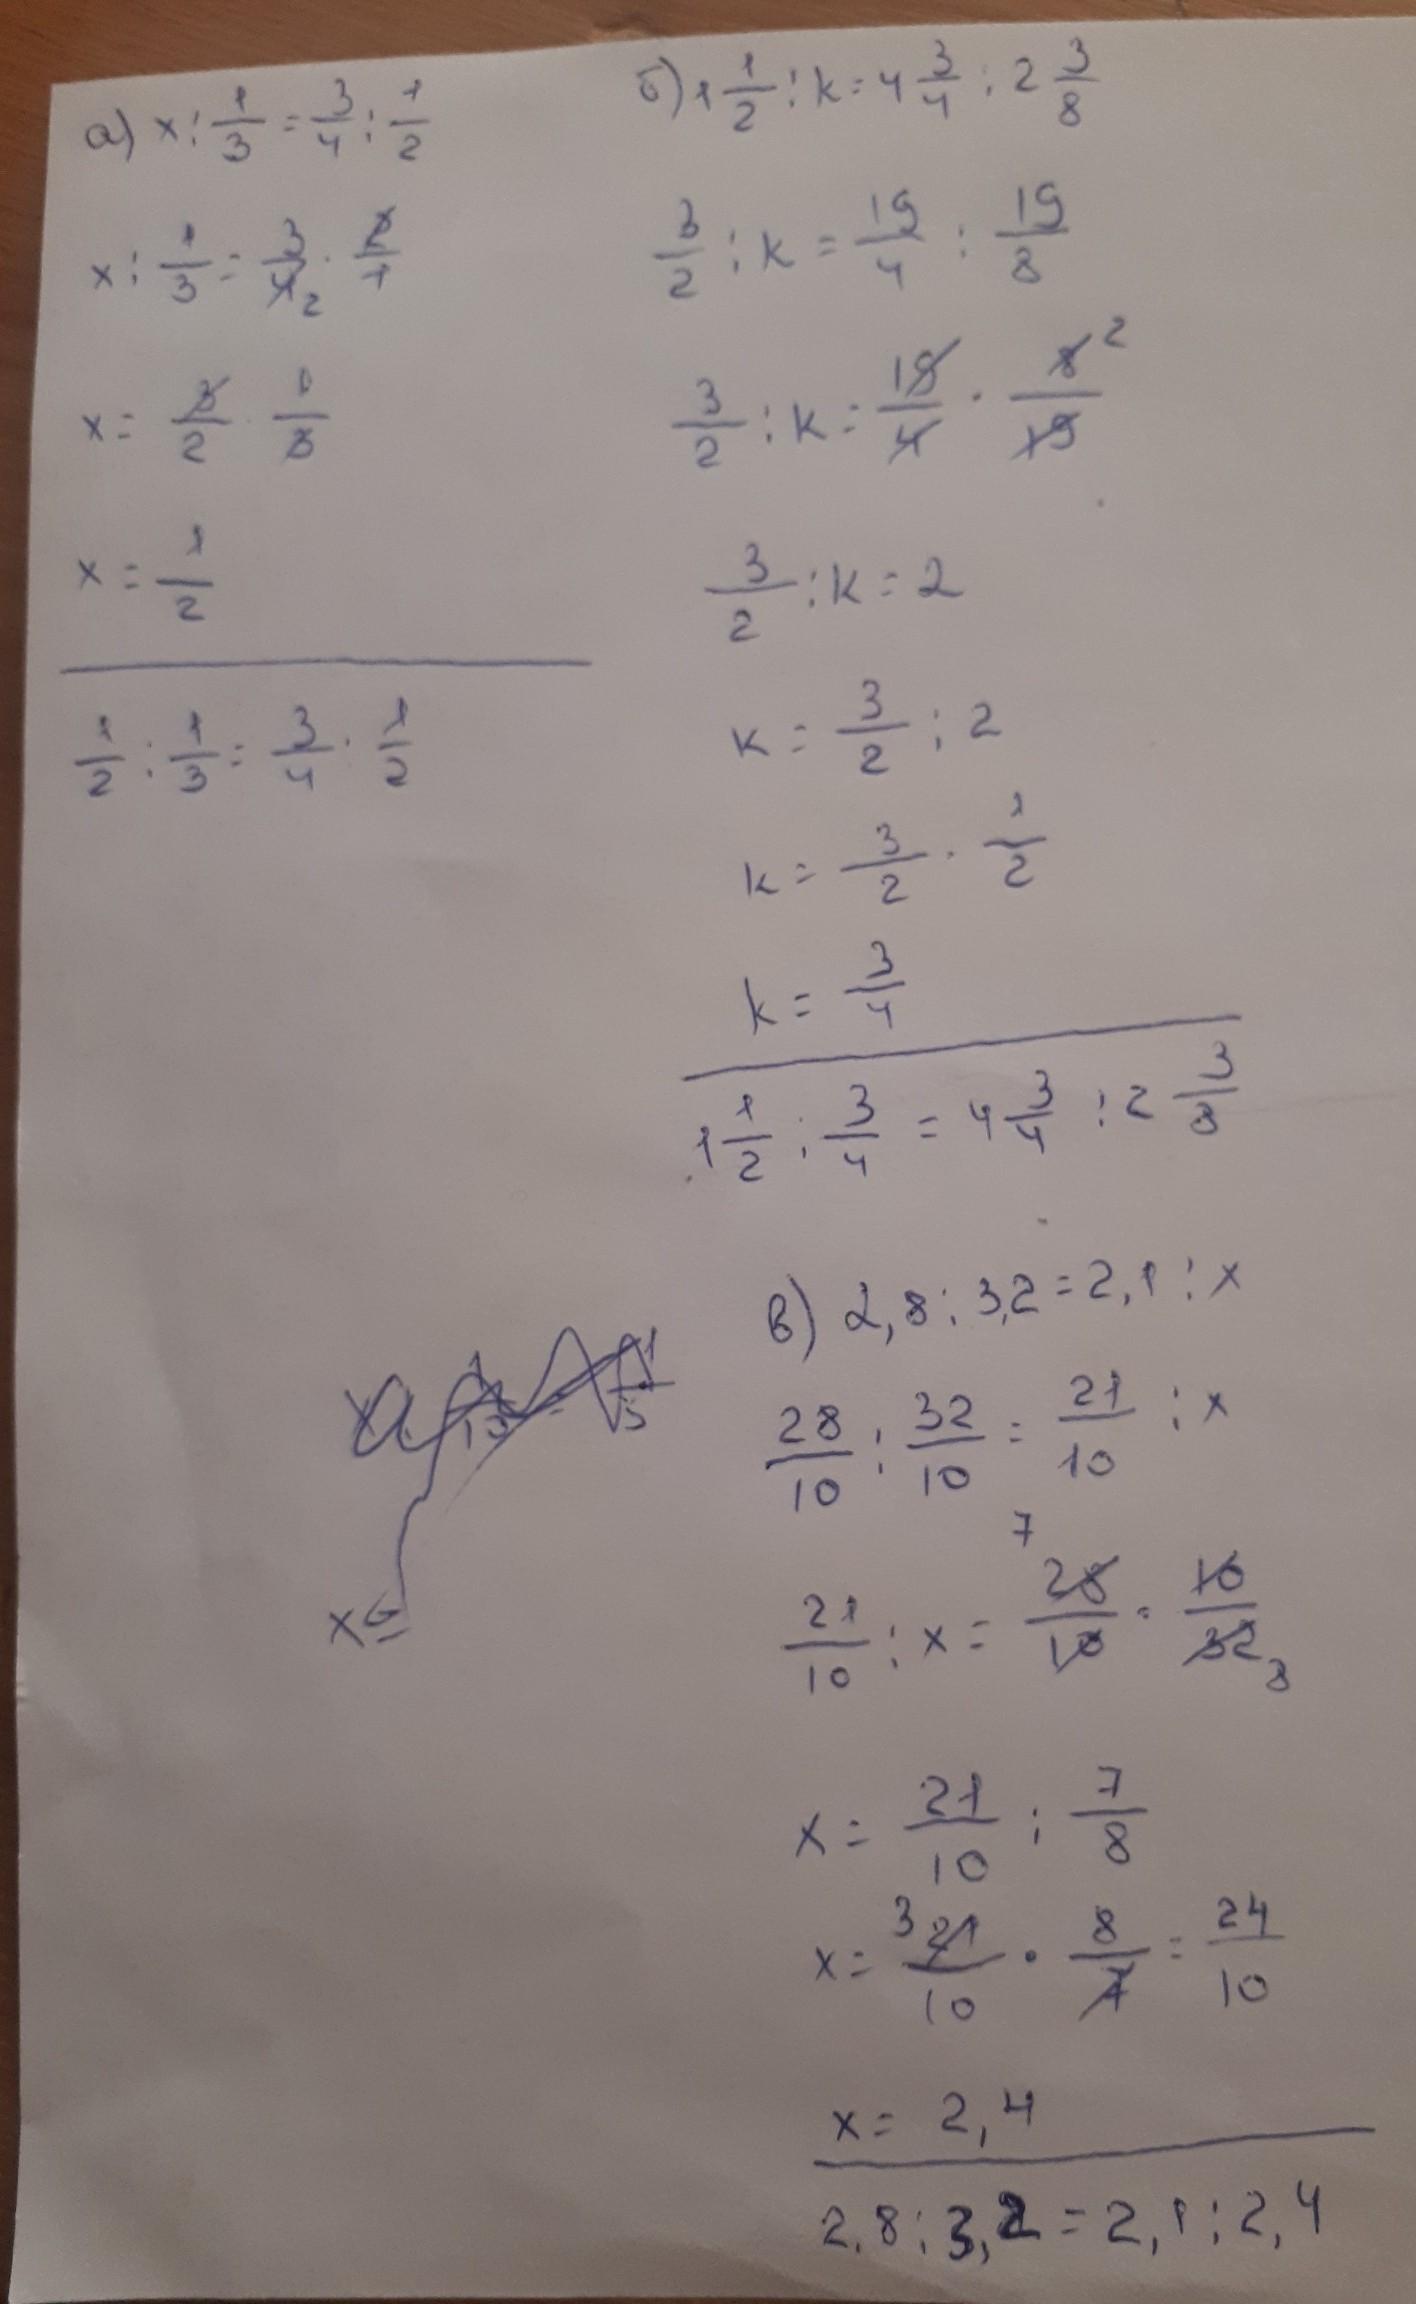 а) x : 1/3 = 3/4 : 1/2
x : 1/3 = 3/4 2 · 2/1
x = 3/2 · 1/3
x = 1/2
1/2 : 1/3 = 3/4 · 1/2
б) 1 1/2 : k = 4 3/4 : 2 3/8
3/2 : k = 19/4 : 19/8
3/2 : k = 19/4 · 8 2/19
3/2 : k = 2
k = 3/2 : 2
k = 3/2 · 1/2
k = 3/4
1 1/2 : 3/4 = 4 3/4 : 2 3/8
в) 2,8 : 3,2 = 2,1 : x
28/10 : 32/10 = 21/10 : x
21/10 : x = 7 28/10 · 10/32 8
x = 21/10 : 7/8
x = 3 21/10 · 8/7 = 24/10
x = 2,4
2,8 : 3,2 = 2,1 : 2,4
x =